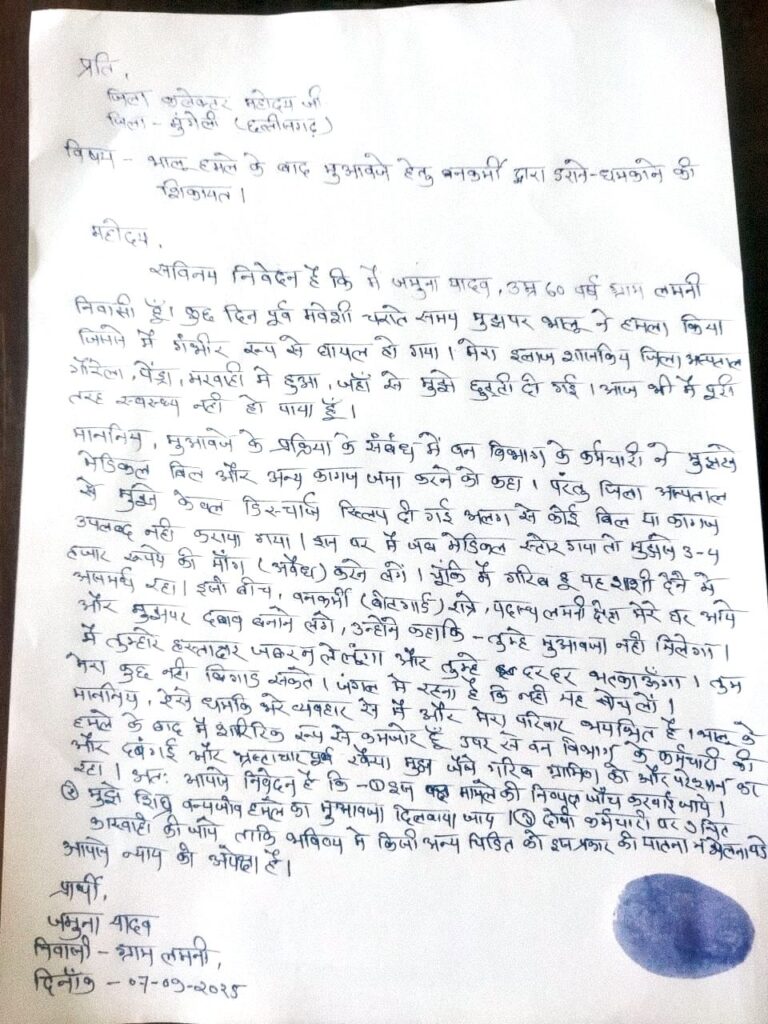 प्रति,
जिला कलेक्टर महोदय जी
जिला - मुंगेली (छत्तीसगढ़)
विषय - भालू हमले के बाद मुआवजे हेतु वनकर्मी द्वारा डराने-धमकाने की
शिकायत।
महोदय,
सविनय निवेदन है कि मैं जमुना यादव, उम्र 60 वर्ष ग्राम लमनी
निवासी हूँ। कुछ दिन पूर्व मवेशी चराते समय मुझपर भालू ने हमला किया
जिसमे मैं गंभीर रूप से घायल हो गया। मेरा इलाज शासकिय जिला अस्पताल
गौरेला, पेंड्रा, मरवाही मे हुआ, जहाँ से मुझे छुट्टी दी गई। आज भी मैं पूरी
तरह स्वस्थ्य नही हो पाया हूँ।
माननिय, मुआवजे के प्रक्रिया के संबंध में वन विभाग के कर्मचारी ने मुझसे
मेडिकल बिल और अन्य कागज जमा करने को कहा। परंतु जिला अस्पताल
से मुझे केवल डिस्चार्ज स्लिप दी गई अलग से कोई बिल या कागज
उपलब्द नही कराया गया। इस पर मैं जब मेडिकल स्टोर गया तो मुझसे 3-4
हजार रूपये की माँग (अवैध) करने लगे। चूंकि मैं गरिब हू यह राशी देने मे
असमर्थ रहा। इसी बीच, वनकर्मी (बीटगार्ड) रात्रे, पदस्थ लमनी मेरे घर आये
और मुझपर दबाव बनाने लगे, उन्होंने कहाकि - तुम्हे मुआवजा नही मिलेगा।
मैं तुम्हारे हस्ताक्षर जबरन ले लूंगा और तुम्हे दर दर भटकाऊँगा। तुम
मेरा कुछ नही बिगाड़ सकते। जंगल मे रहना है कि नही यह सोच लो।
माननिय, ऐसे धमकि भरे व्यवहार से मैं और मेरा परिवार भयभित है। भालू के
हमले के बाद मैं शारिरिक रूप से कमजोर हूँ उपर से वन विभाग के कर्मचारी की
और दबंगई और भ्रष्टाचार पूर्व रवैया मुझ जैसे गरिब ग्रामिण को और परेशान कर
रहा। अतः आपसे निवेदन है कि - ① इस मामले की निष्पक्ष जाँच करवाई जाये।
② मुझे शिघ्र वन्यजीव हमले का मुआवजा दिलवाया जाय। ③ दोषी कर्मचारी पर उचित
कारवाही की जाये ताकि भविष्य मे किसी अन्य पिड़ित को इस प्रकार की यातना न झेलना पड़े
आपसे न्याय की अपेक्षा है।
प्रार्थी,
जमुना यादव
निवासी - ग्राम लमनी,
दिनाँक - 07-09-2025